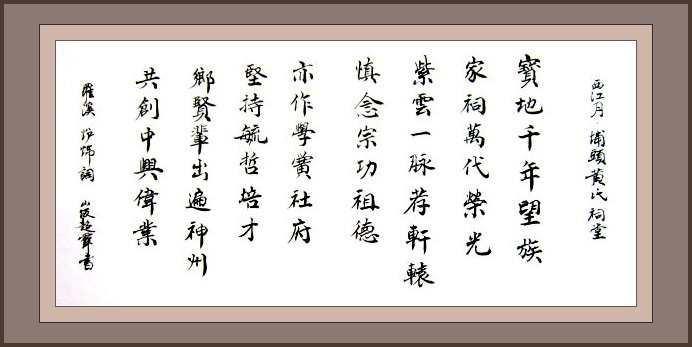 西江月·埔頭黃氏祠堂
寶地千年望族
家祠萬代榮光
紫雲一脉荐軒轅
慎念宗功祖德
亦作學黌社府
堅持毓哲培才
鄉賢輩出遍神州
共創中興偉業
羅溪 詞 書